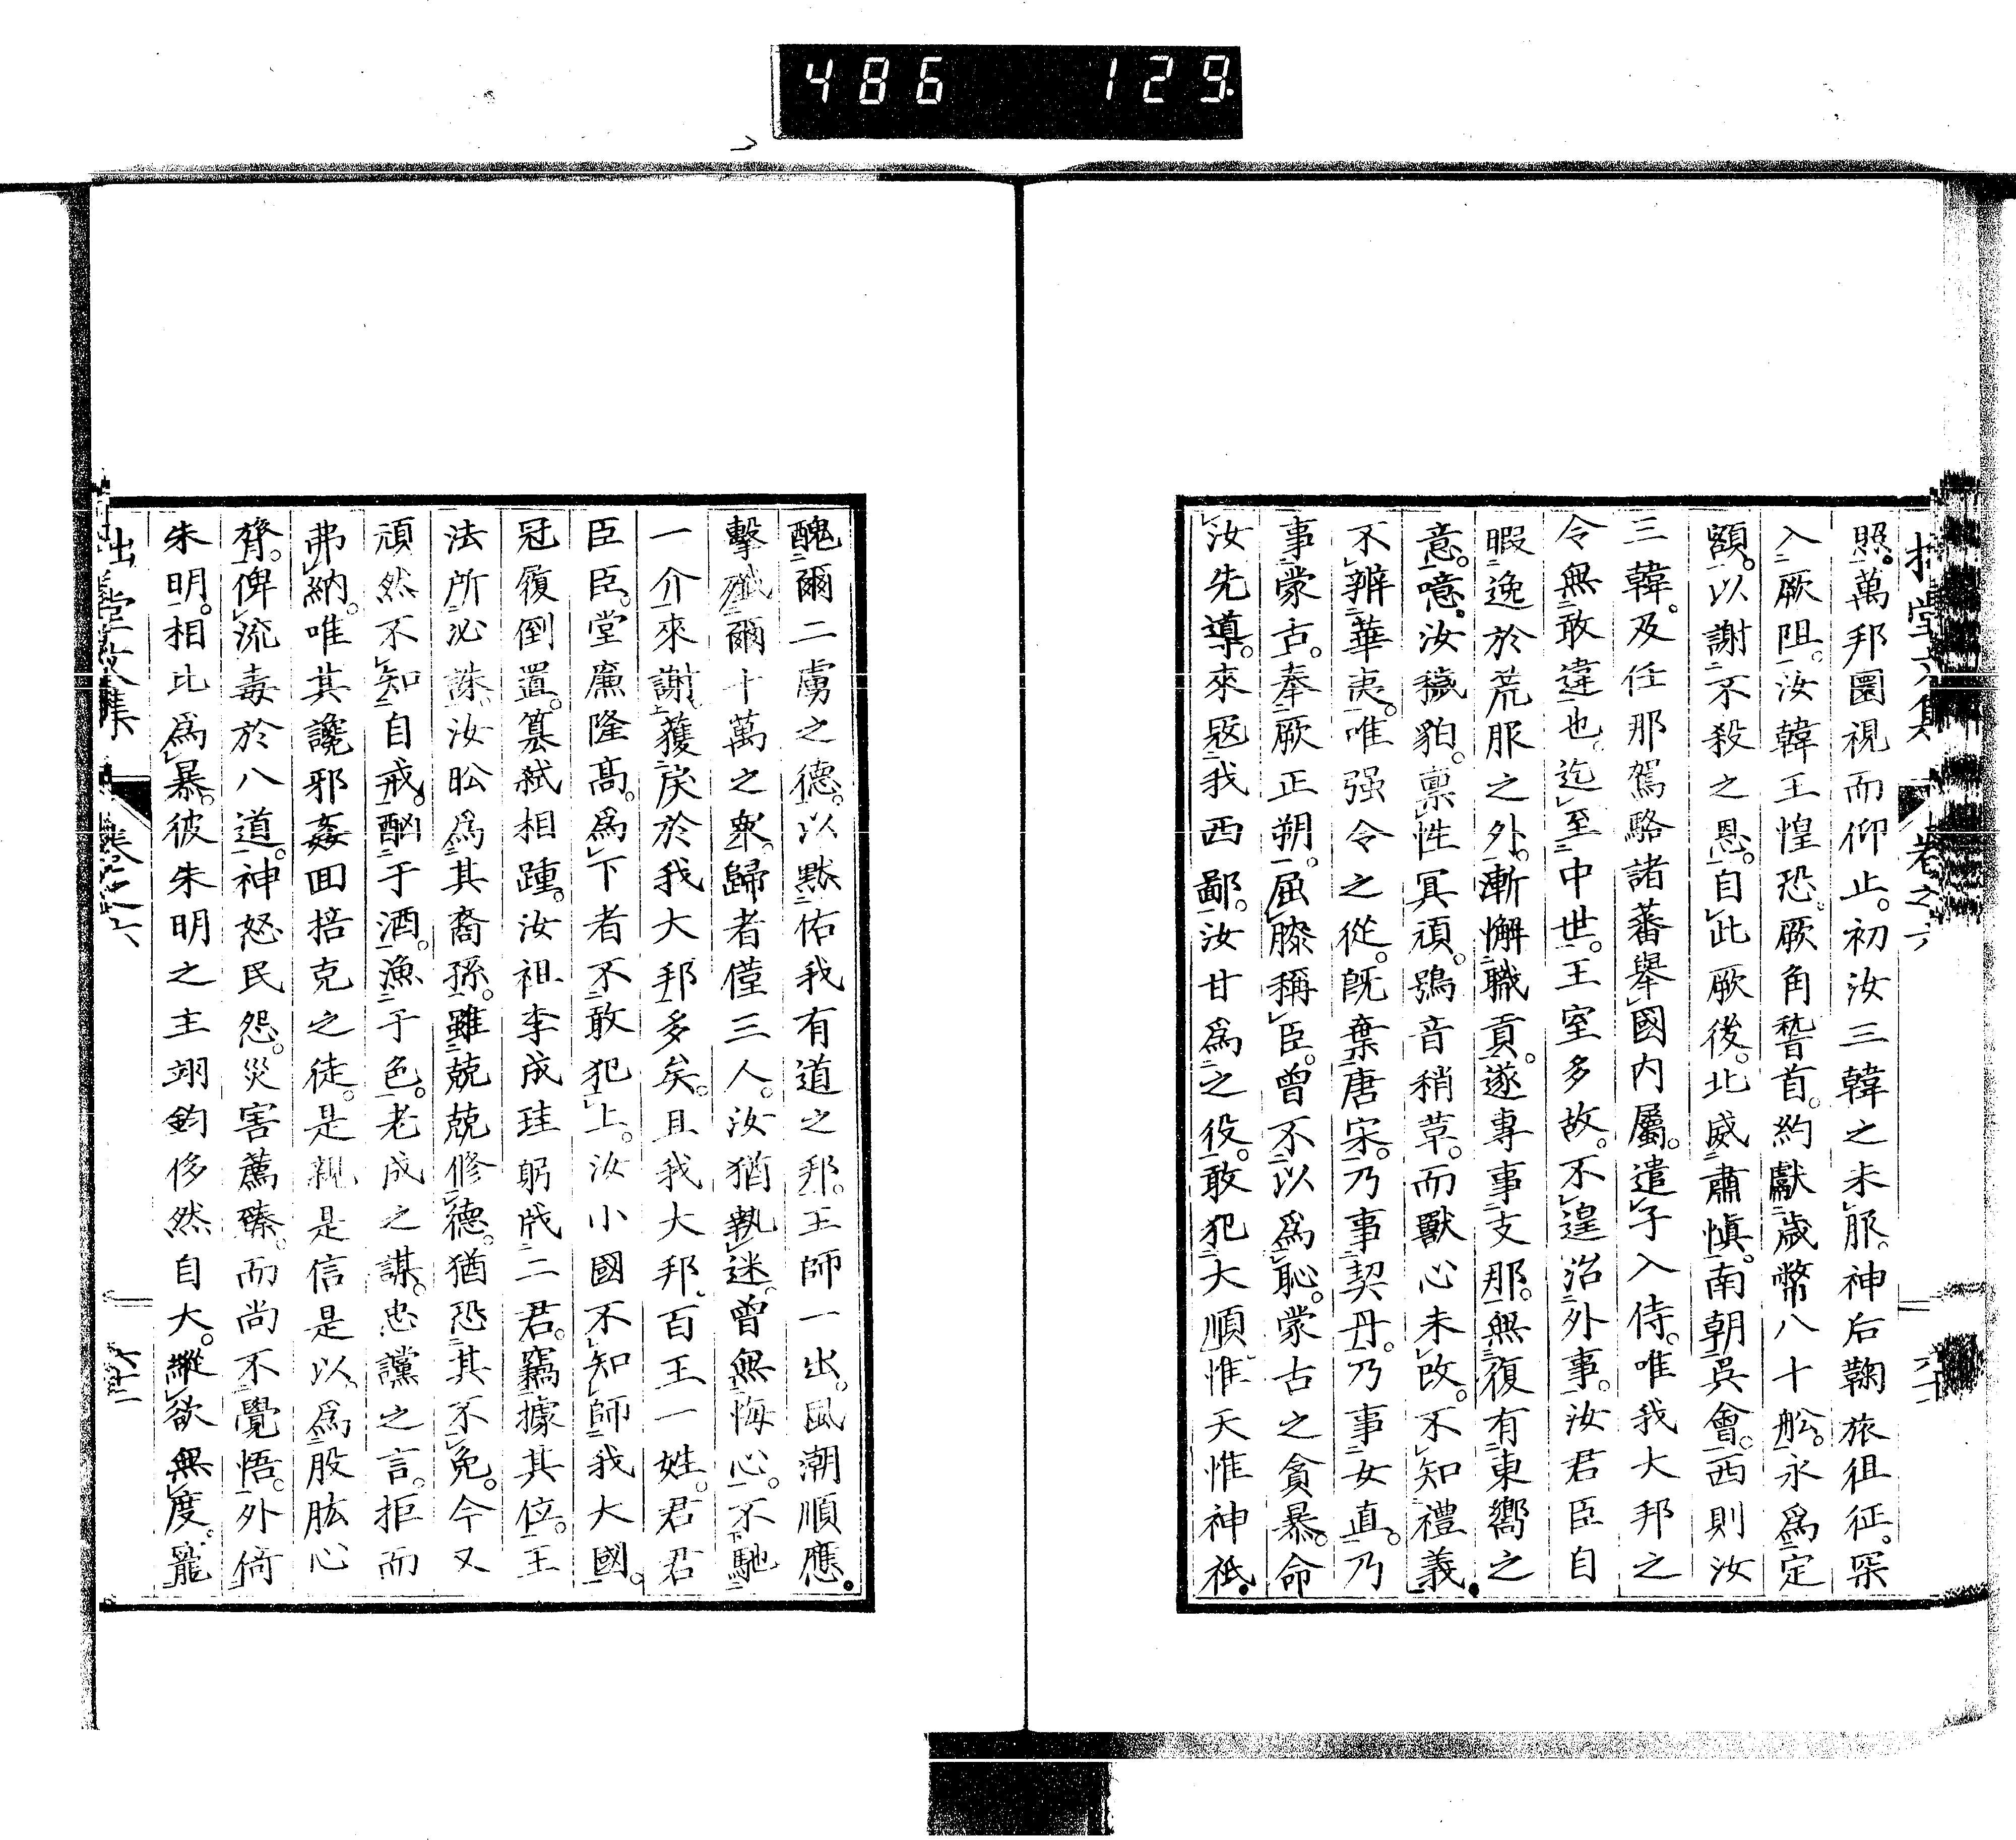 486 129
照。萬邦圜視而仰止。初汝三韓之未服。神后鞠旅徂征。罙
入厥阻。汝韓王惶恐。厥角稽首。約獻歲幣八十舩。永爲定
額。以謝不殺之恩。自此厥後。北威肅愼。南朝吳會。西則汝
三韓。及任那駕駱諸蕃舉國内屬。遣子入侍。唯我大邦之
令無敢違也。迄至中世。王室多故。不遑治外事。汝君臣自
暇逸於荒服之外。漸懈職貢。遂專事支那。無復有東嚮之
意。噫。汝穢貊。禀性冥頑。鴞音稍革。而獸心未改。不知禮義。
不辨華夷。唯强令之從。旣棄唐宋。乃事契丹。乃事女直。乃
事蒙古。奉厥正朔。屈膝稱臣。曾不以爲恥。蒙古之貪暴。命
汝先導。來寇我西鄙。汝甘爲之役。敢犯大順。惟天惟神祇。
醜爾二虜之德。以默佑我有道之邦。王師一出。風潮順應。
擊殱爾十萬之衆。歸者僅三人。汝猶執迷。曾無悔心。不馳
一介來謝獲戾於我大邦多矣。且我大邦。百王一姓。君君
臣臣。堂廉隆高。爲下者不敢犯上。汝小國不知師我大國。
冠履倒置。簒弑相踵。汝祖李成珪躬戕二君。竊據其位。王
法所必誅。汝昖爲其裔孫。雖兢兢修德。猶恐其不免。今又
頑然不知自戒。酗于酒。漁于色。老成之謀。忠讜之言。拒而
弗納。唯其讒邪姦回掊克之徒。是親是信是以爲股肱心
膂。俾流毒於八道。神怒民怨。災害薦臻。而尚不覺悟。外倚
朱明。相比爲暴。彼朱明之主翊鈞侈然自大。縱欲無度。寵
堂文集 卷之六 六十二